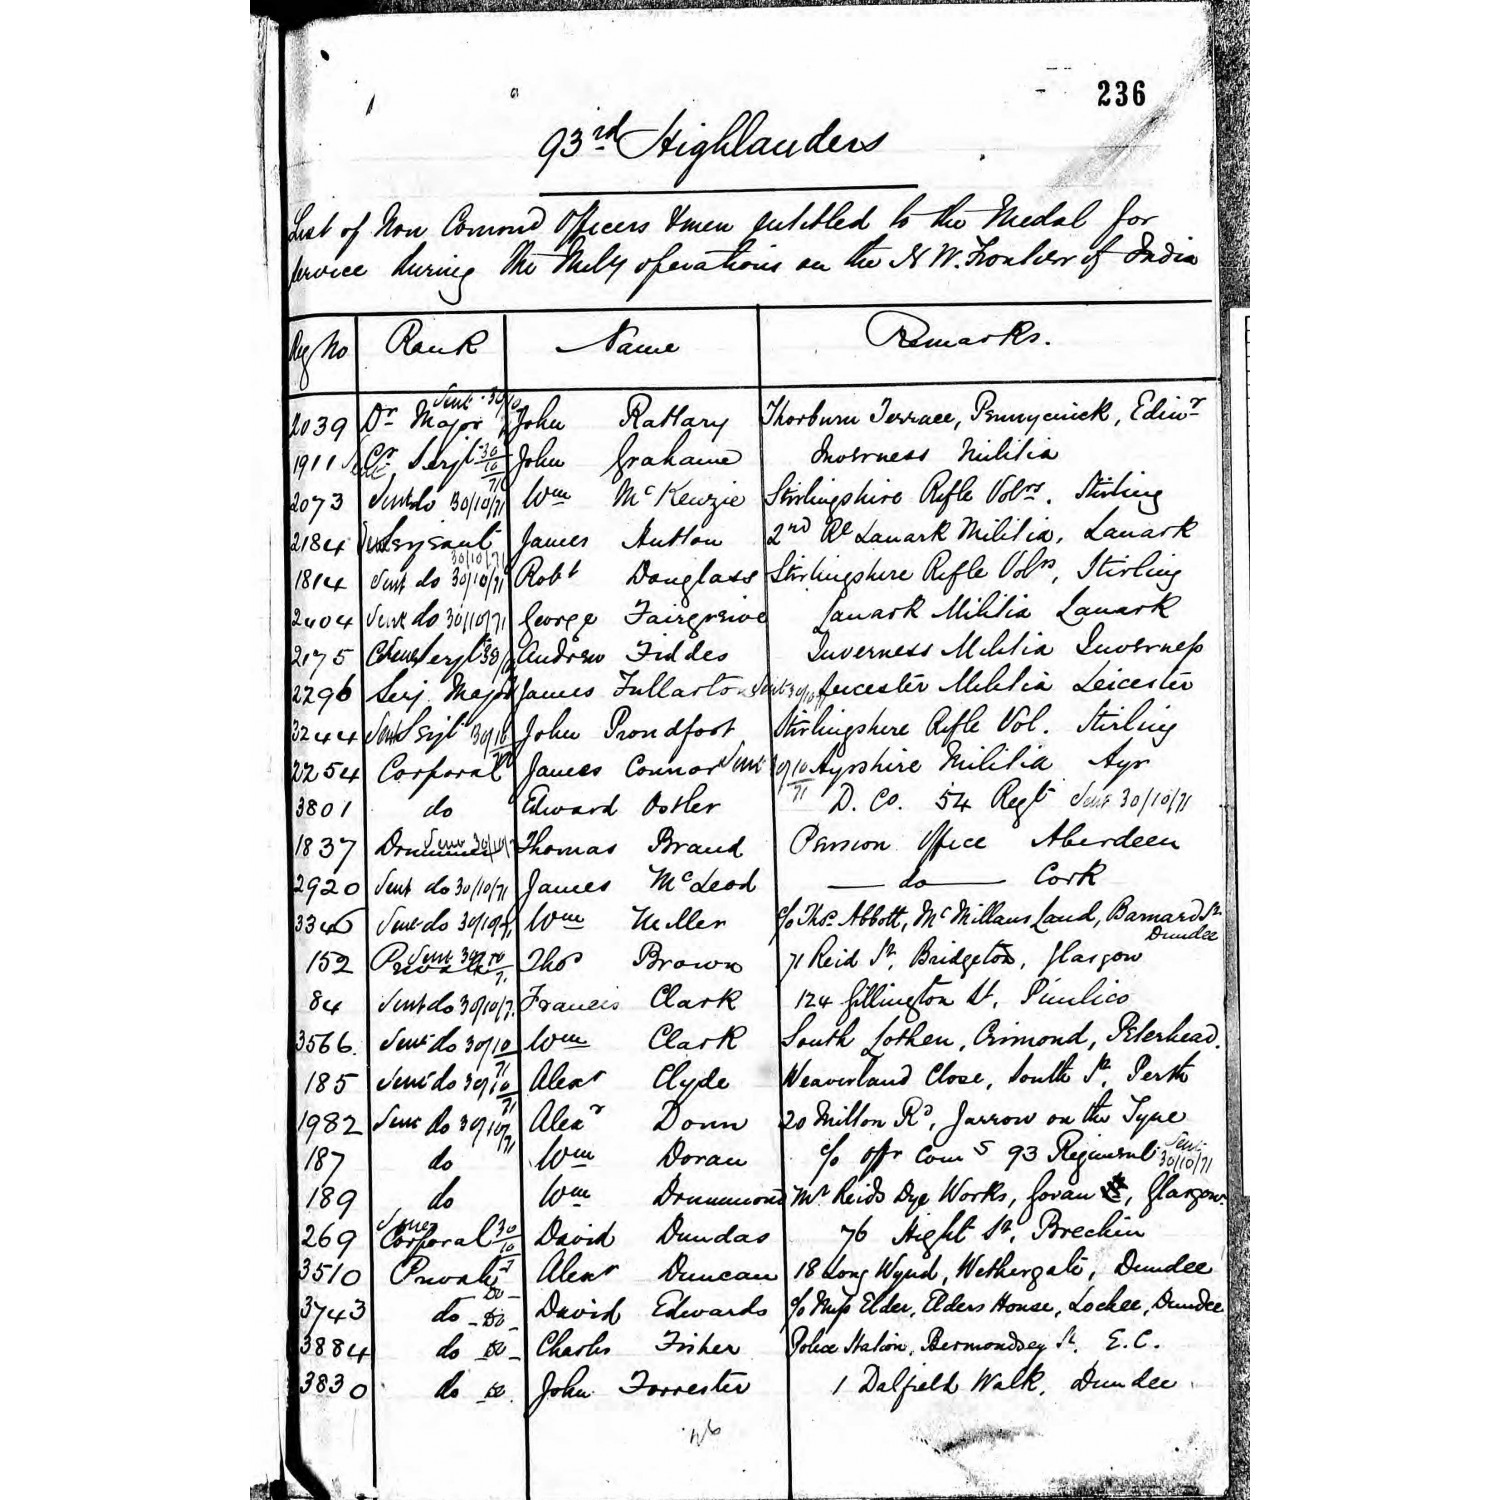 236
93rd Highlanders
List of Non Comond Officers & men entitled to the Medal for
service during the Mily operations on the N W. Frontier of India
Reg No Rank Name Remarks.
2039 Dr Major Sent 30/10 John Rattary Thorburn Terrace, Pennycuick, Edinr
1911 Cr Serjt 30/10/71 John Grahame Inverness Militia
2073 Sent do 30/10/71 Wm McKenzie Stirlingshire Rifle Volrs. Stirling
2184 Serjeant 30/10/71 James Hutton 2nd Rl Lanark Militia, Lanark
1814 Sent do 30/10/71 Robt Douglass Stirlingshire Rifle Volrs, Stirling
2404 Sent do 30/10/71 George Fairgreive Lanark Militia Lanark
2175 Serjt Andrew Fiddes Inverness Militia Inverness
2296 Serj. Major James Fullarton Sent 30/10/71 Leicester Militia Leicester
3244 Sent Serjt 30/10/71 John Proudfoot Stirlingshire Rifle Vol. Stirling
2254 Corporal James Connor Sent 30/10/71 Ayrshire Militia Ayr
3801 do Edward Ostler D. Co. 54 Regt Sent 30/10/71
1837 Drummer Sent 30/10/7 Thomas Brand Pension Office Aberdeen
2920 Sent do 30/10/71 James McLeod — do — Cork
334 Sent do 30/10/71 Wm Miller c/o Thos Abbott, McMillans Land, Barnard St.
Dundee
152 Private Sent 30/10/7. Thos Brown 71 Reid St. Bridgeton, Glasgow
84 Sent do 30/10/7. Francis Clark 124 Gillington St. Pimlico
3566. Sent do 30/10/71 Wm Clark South Lothen, Crimond, Peterhead.
185 Sent do 30/10/71 Alexr Clyde Weaverland Close, South St. Perth
1982 Sent do 30/10/71 Alexr Donn 20 Milton Rd, Jarrow on the Tyne
187 do Wm Doran c/o offr Coms 93 Regiment Sent 30/10/71
189 do Wm Drummond Mr Reids Dye Works, Govan St, Glasgow.
269 Corporal 30/10/7 David Dundas 76 Hight St. Brechin
3510 Private Do Alexr Duncan 18 Long Wynd, Wethergate, Dundee
3743 do - Do - David Edwards c/o Miss Elder, Elders House, Lochee, Dundee
3884 do Do - Charles Fisher Police Station, Bermondsey St. E.C.
3830 do Do. John Forrester 1 Dalfield Walk, Dundee